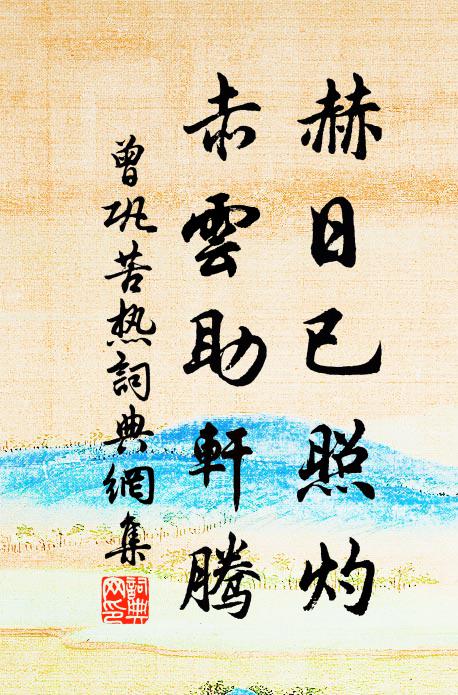 赫日已照灼
赤雲助軒騰
曾巩苦热詞典網集
詞典